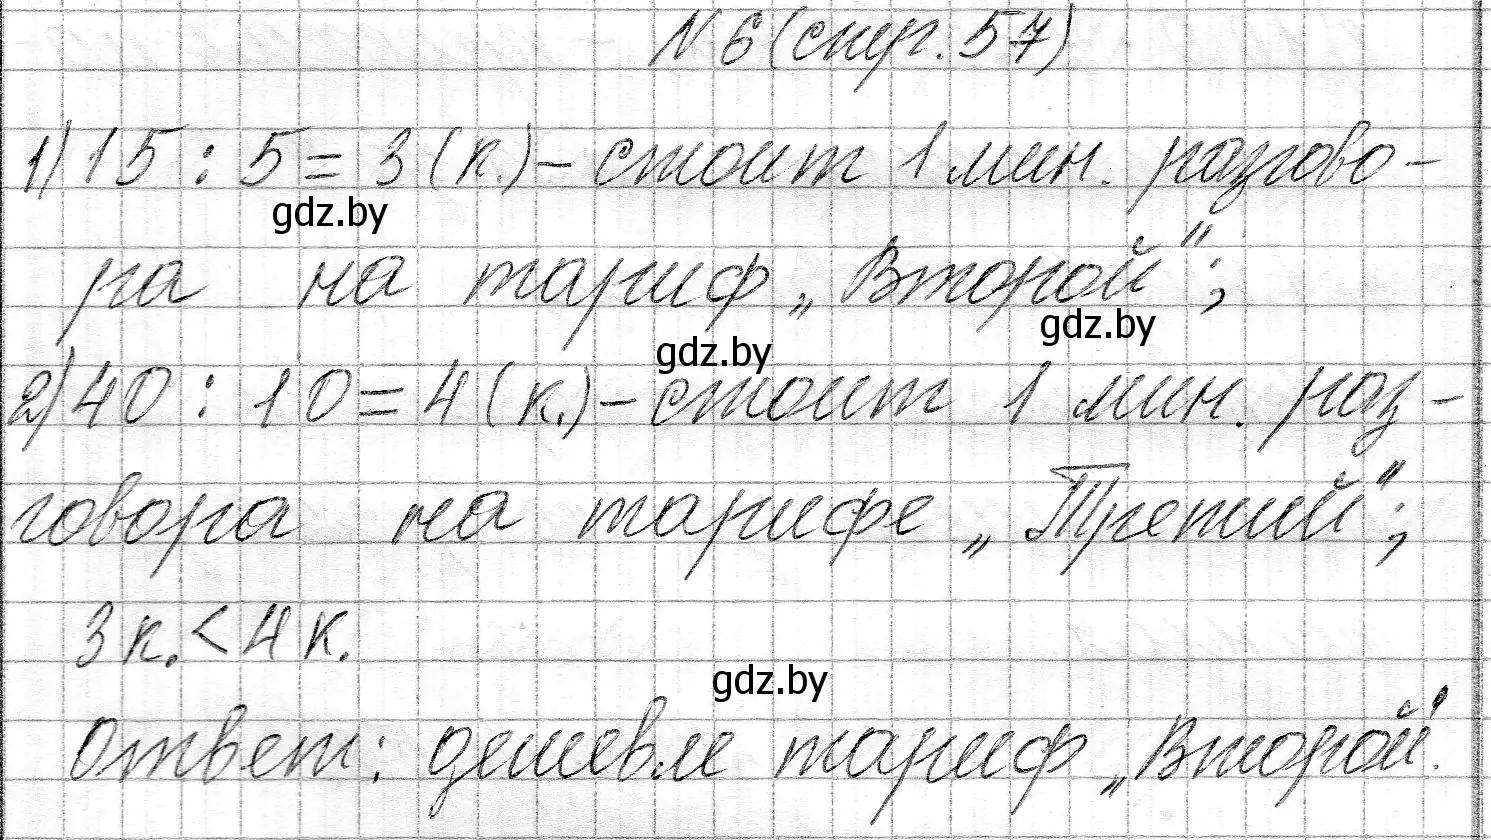 № 6 (стр. 57)
1) 15 : 5 = 3 (к.) – стоит 1 мин. разгово-
gdz.by
ра на тариф „Второй";
gdz.by
gdz.by
2) 40 : 10 = 4 (к.) – стоит 1 мин. раз-
говора на тарифе „Третий";
3 к. < 4 к.
gdz.by
Ответ: дешевле тариф „Второй".